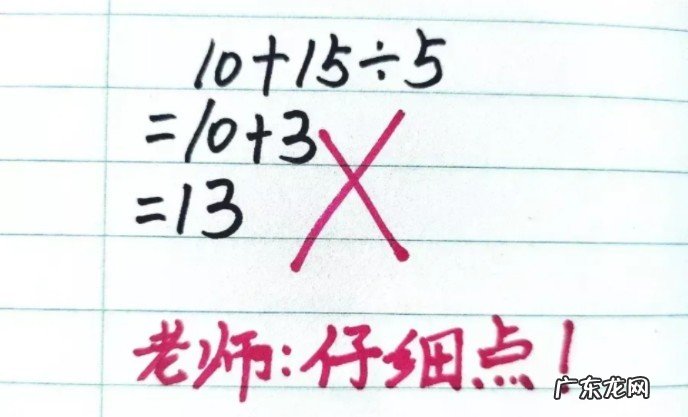 10+15÷5
=10+3
=13
老师:仔细点!
广东龙网